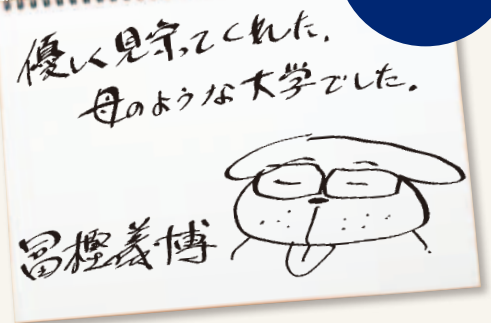 優しく見守ってくれた、
母のような大学でした。
冨樫義博